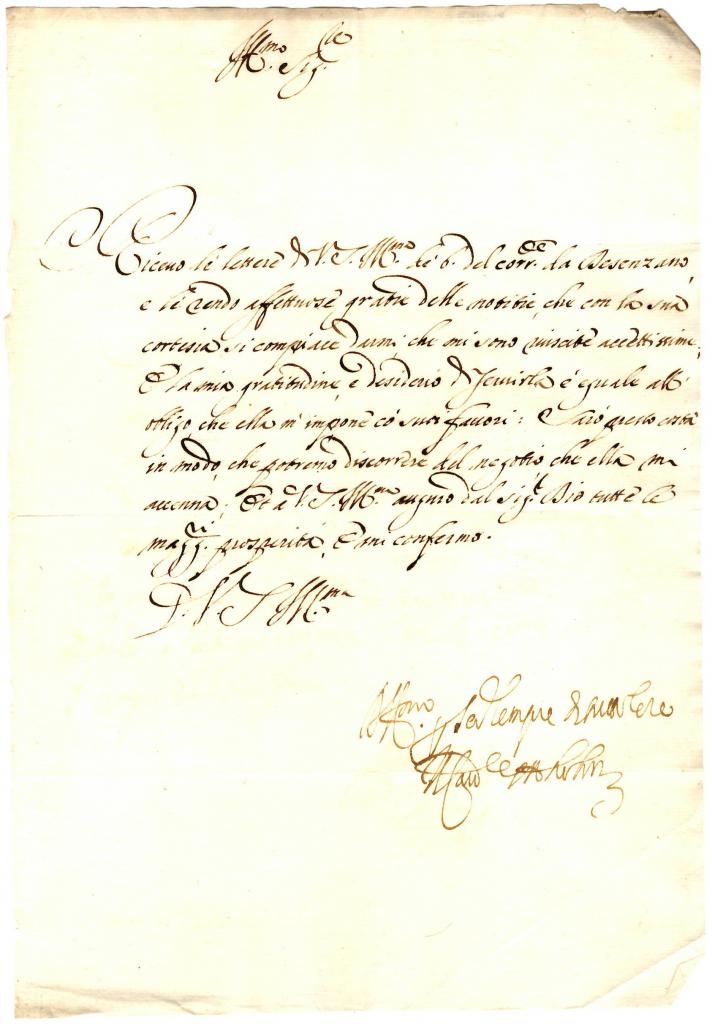 Ill.mo Sig.re
Riceuo le lettere di V. S. Ill.ma de 6. del corr.te da Desenzano,
e le rendo affettuose gratie delle notitie, che con la sua
cortesia si compiace darmi, che mi sono riuscite accettissime,
E la mia gratitudine, e desiderio di seruirla è eguale all'
obligo che ella m'impone co' suoi fauori: Sarò presto costà
in modo, che potremo discorrere del negotio che ella mi
accenna; Et à V. S. Ill.ma auguro dal Sig.r Dio tutte le
magg.ri prosperità, E mi confermo.
D. V. S. Ill.ma
Aff.mo sempre